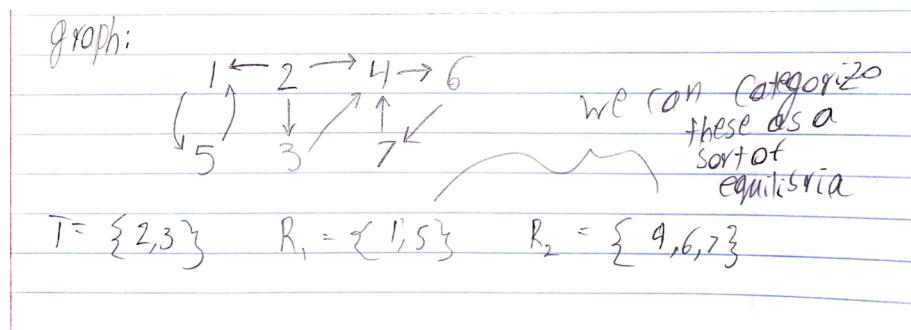 graph:
1 ← 2 → 4 → 6
5 3 7
we can categorize
these as a
sort of
equilibria
T = {2,3} R₁ = {1,5} R₂ = {4,6,7}